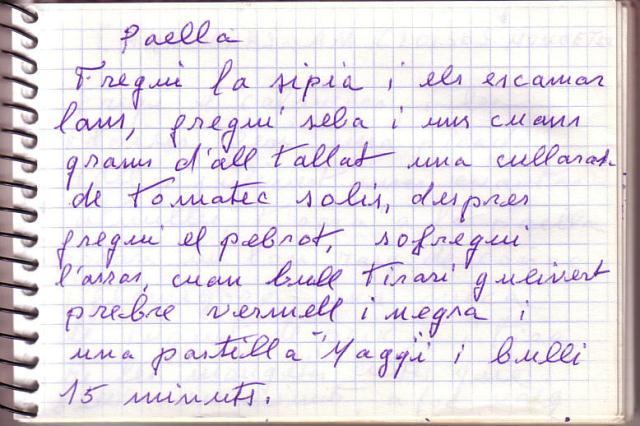 Paella
Fregui la sipia i els escamar
lans, fregui seba i uns cuans
grans d'all tallat una cullarat
de tomatec solis, despres
fregui el pebrot, sofregui
l'arras, cuan bull tirari gueivert
prebre vermell i negra i
una pastilla "Maggi i bulli
15 minuts.